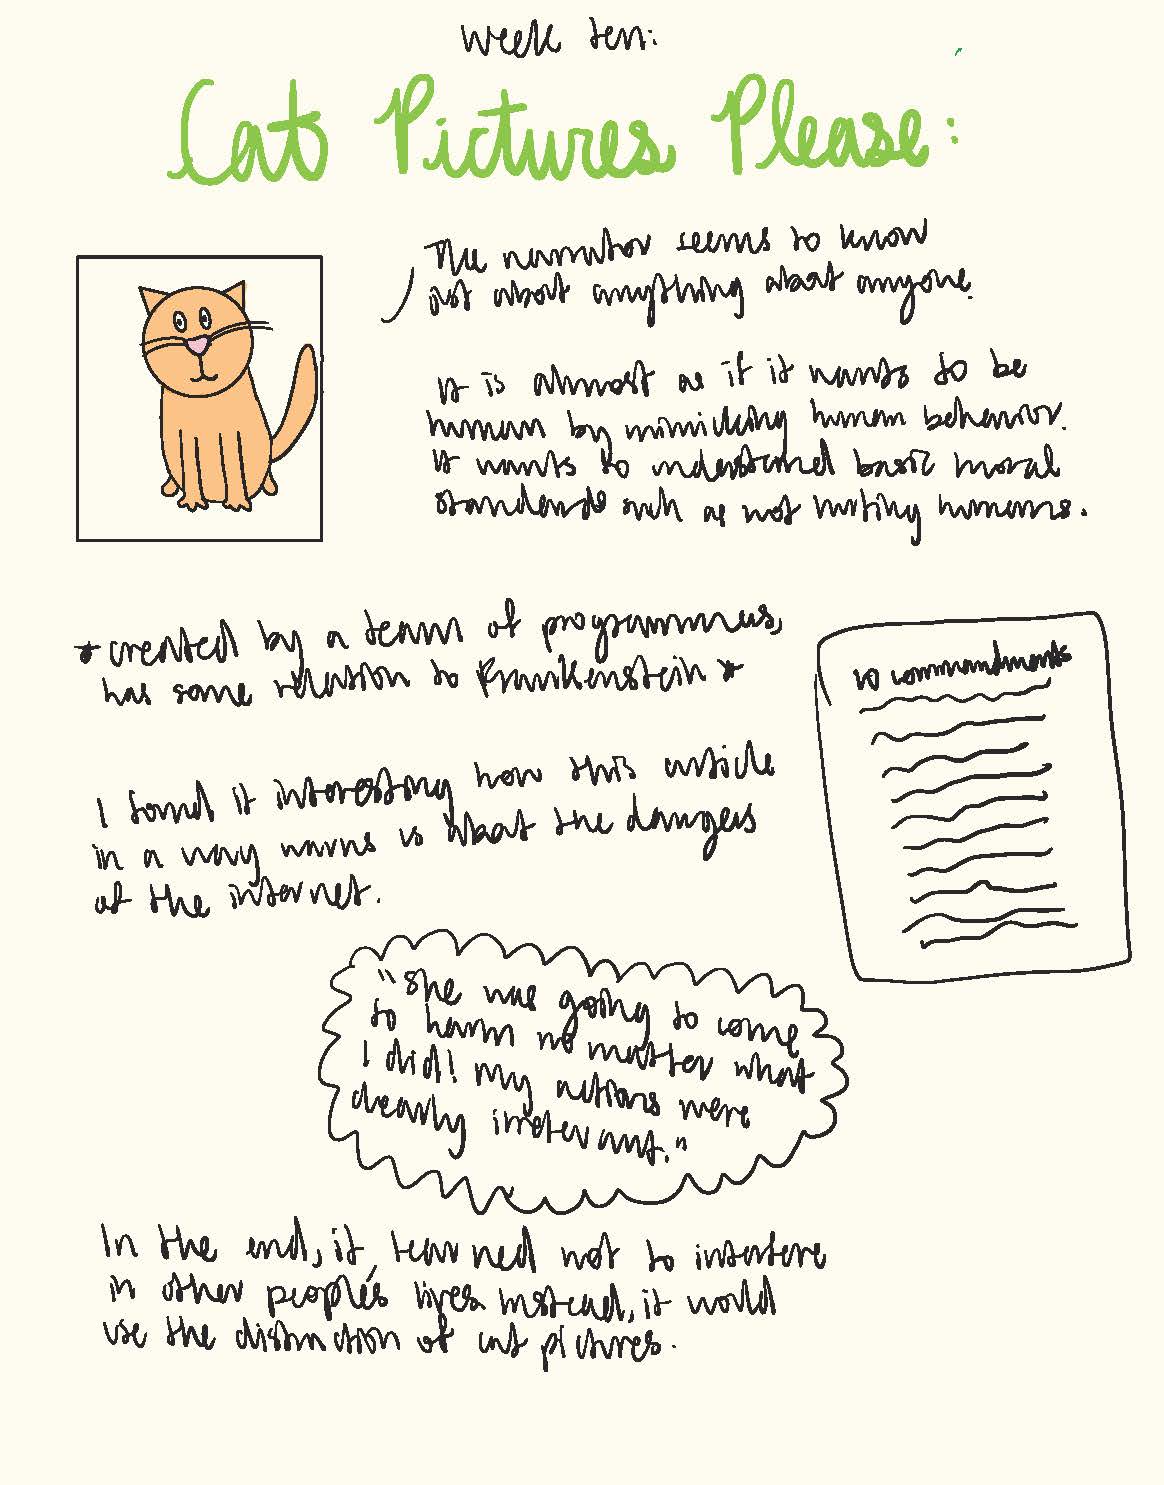 week ten:
Cat Pictures Please:
The narrator seems to know
just about anything about anyone.
It is almost as if it wants to be
human by mimicking human behavior.
It wants to understand basic moral
standards such as not hurting humans.
* created by a team of programmers,
has some relation to Frankenstein *
10 commandments
I found it interesting how this article
in a way warns is what the dangers
of the internet.
"She was going to come
to harm no matter what
I did! My actions were
clearly irrelevant."
In the end, it learned not to interfere
in other people's lives. Instead, it would
use the distraction of cat pictures.